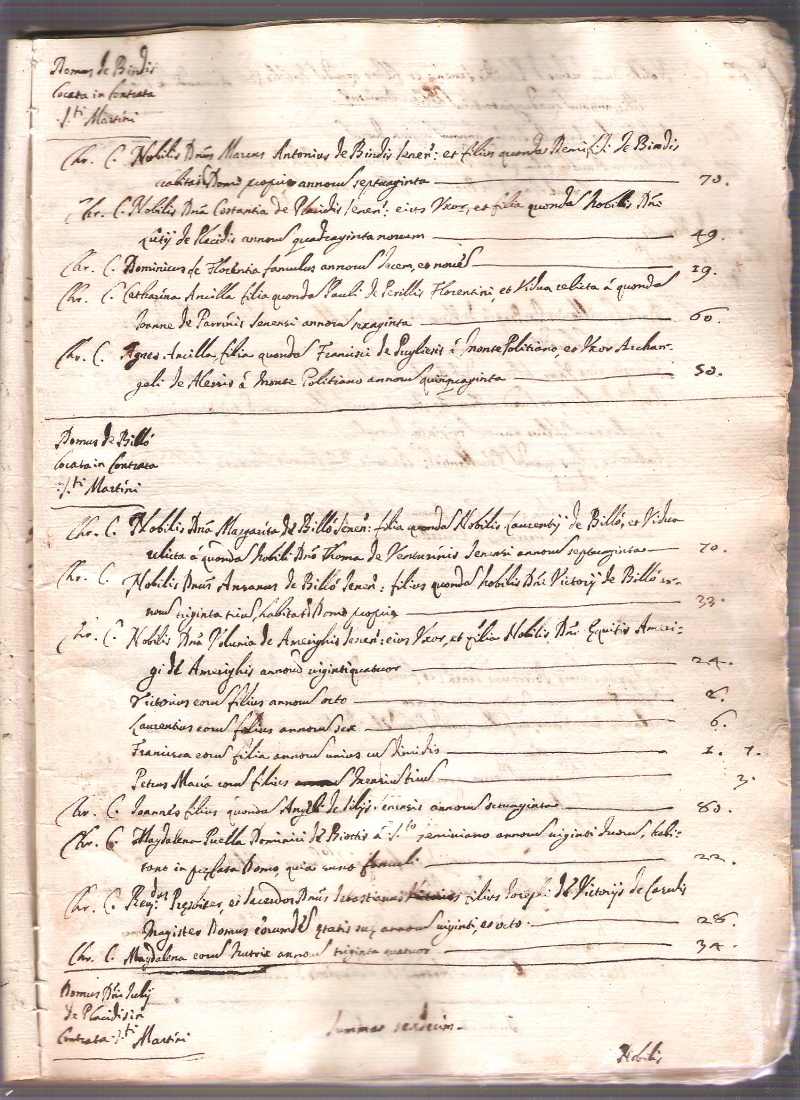 Domus de Bindis
locata in Contrata
S.ti Martini
Chr. C. Nobilis Dnus Marcus Antonius de Bindis Senen: et filius quonda de Bindis
habitat Domo propria annorum septuaginta 70.
Chr. C. Nobilis Dna Costantia de Placidis Senen: eius Uxor, et filia quonda Nobilis Dni
Lutij de Placidis annorum quadraginta novem 49.
Chr. C. Dominicus de Florentia famulus annorum decem, et novem 19.
Chr. C. Catharina Ancilla filia quonda Pauli de Perillis Florentini, et Vidua relicta á quonda
Joanne de Senensi annorum sexaginta 60.
Chr. C. Agnes Ancilla filia quonda Francisci de Puglieris á Monte Politiano, et Uxor Archan-
geli de Alexiis á Monte Politiano annorum quinquaginta 50.
Domus de Billó
locata in Contrata
S.ti Martini
Chr. C. Nobilis Dna Margarita de Billó Senen: filia quonda Nobilis Laurentij de Billó, et Vidua
relicta á quonda Nobili Dno Thoma de Venturinis Senensi annorum septuaginta 70.
Chr. C. Nobilis Dnus Ansanus de Billó Senen: filius quonda Nobilis Dni Victorij de Billó an-
norum triginta trium, habitat Domo propria 33.
Chr. C. Nobilis Dna Volunia de Amerighis Senen: eius Uxor, et filia Nobilis Dni Equitis Ameri-
gi de Amerighis annorum vigintiquatuor 24.
Victorius eorum filius annorum octo 8.
Laurentius eorum filius annorum sex 6.
Francisca eorum filia annorum unius cum dimidio 1. 7.
Petrus Maria eorum filius mensium trium 3.
Chr. C. Joannes filius quonda Angeli de annorum octuaginta 80.
Chr. C. Magdalena Puella Dominici de á S.to Geminiano annorum viginti duorum, habi-
tant in pfata Domo, quia famuli 22.
Chr. C. Rev.dus Presbiter, et Sacerdos Dnus Sebastianus filius Joseph de Victorijs de
Magister Domus eorumdem etatis sue annorum viginti, et octo 28.
Chr. C. Magdalena eorum Nutrix annorum triginta quatuor 34.
Domus Dni Julij
de Placidis in
Contrata S.ti Martini
Summa sexdecim.
Nobilis